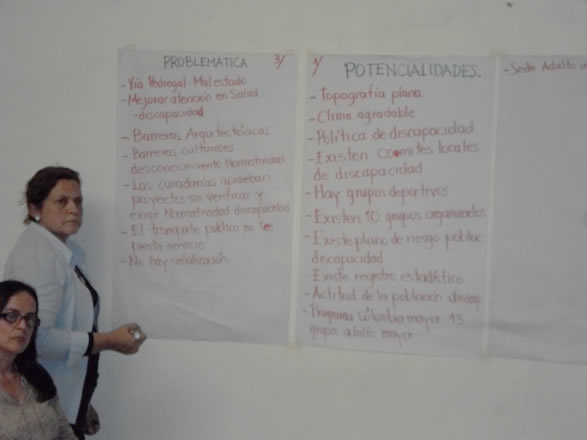 PROBLEMATICA 3/
- Vía Pedregal Mal estado
- Mejorar atención en Salud
· discapacidad
- Barreras Arquitectónicas
- Barreras culturales
desconocimiento Normatividad
- Las curadurías aprueban
proyectos sin verificar y
exigir Normatividad discapacidad
- El transporte publico no les
presta servicio
- No hay señalización
4/ POTENCIALIDADES.
- Topografía plana
- Clima agradable
- Política de discapacidad
- Existen comites locales
de discapacidad
- Hay grupos deportivos
- Existen 10 grupos organizados
- Existe plano de riesgo poblac
discapacidad
- Existe registro estadístico
- Actitud de la población discap
- Programa Colombia mayor 43
grupos adulto mayor
- Sede Adulto m